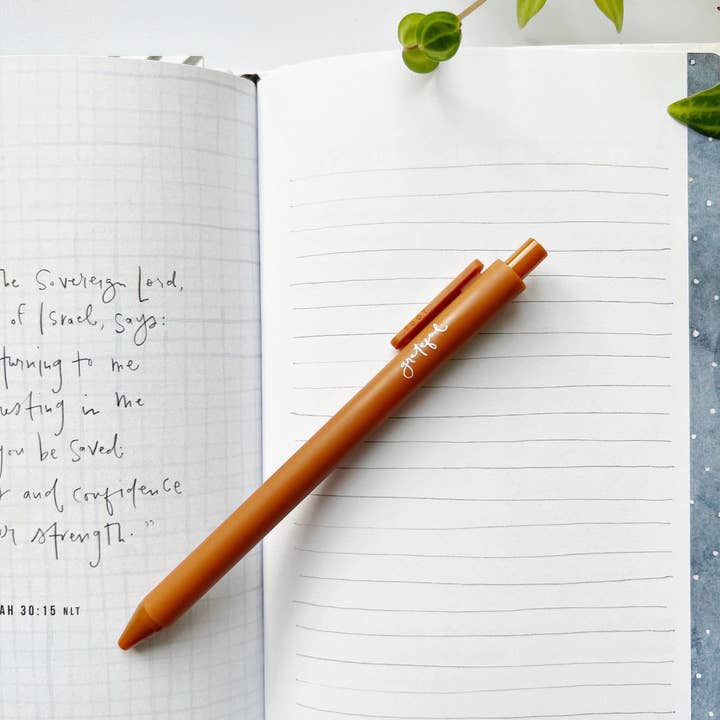 he Sovereign Lord,
of Israel, says:
turning to me
usting in me
you be saved.
r and confidence
or strength."
AH 30:15 NLT
grateful